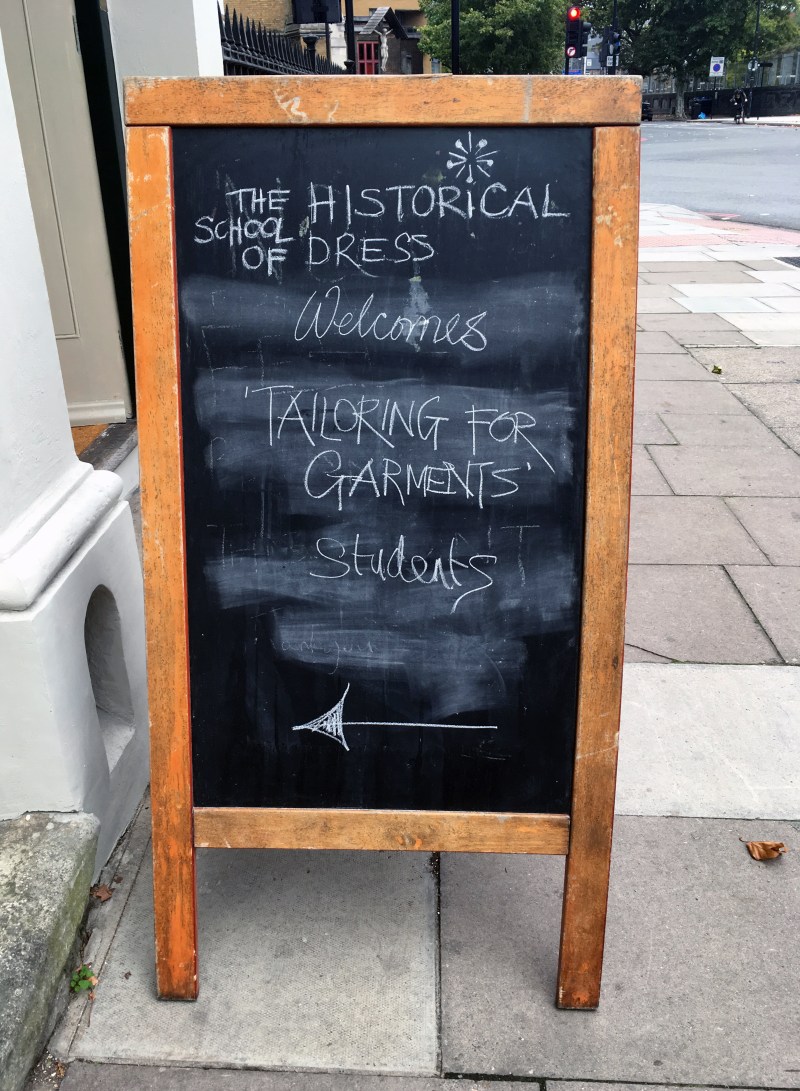 THE SCHOOL OF HISTORICAL DRESS
Welcomes
'TAILORING FOR
GARMENTS'
Students